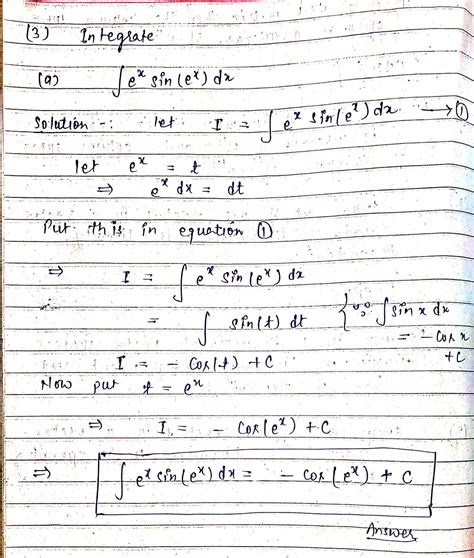 (3) Integrate
(a) ∫ e^x sin(e^x) dx
Solution -: let I = ∫ e^x sin(e^x) dx → ①
let e^x = t
⇒ e^x dx = dt
Put this in equation ①
⇒ I = ∫ e^x sin(e^x) dx
= ∫ sin(t) dt {∵ ∫ sin x dx
= -cos x
+c
I = - cos(t) + C
Now put t = e^x
⇒ I = - cos(e^x) + C
⇒ ∫ e^x sin(e^x) dx = - cos(e^x) + C
Answer